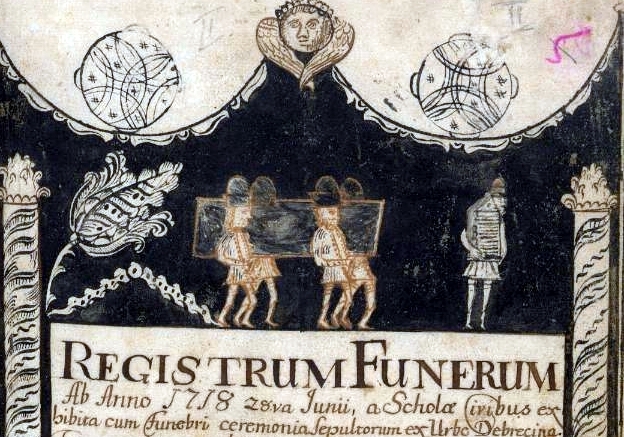 II
II
REGISTRUM FUNERUM
Ab Anno 1718 28va Junii, a Scholæ Civibus ex
hibita cum funebri ceremonia sepultorum ex Urbe Debrecina